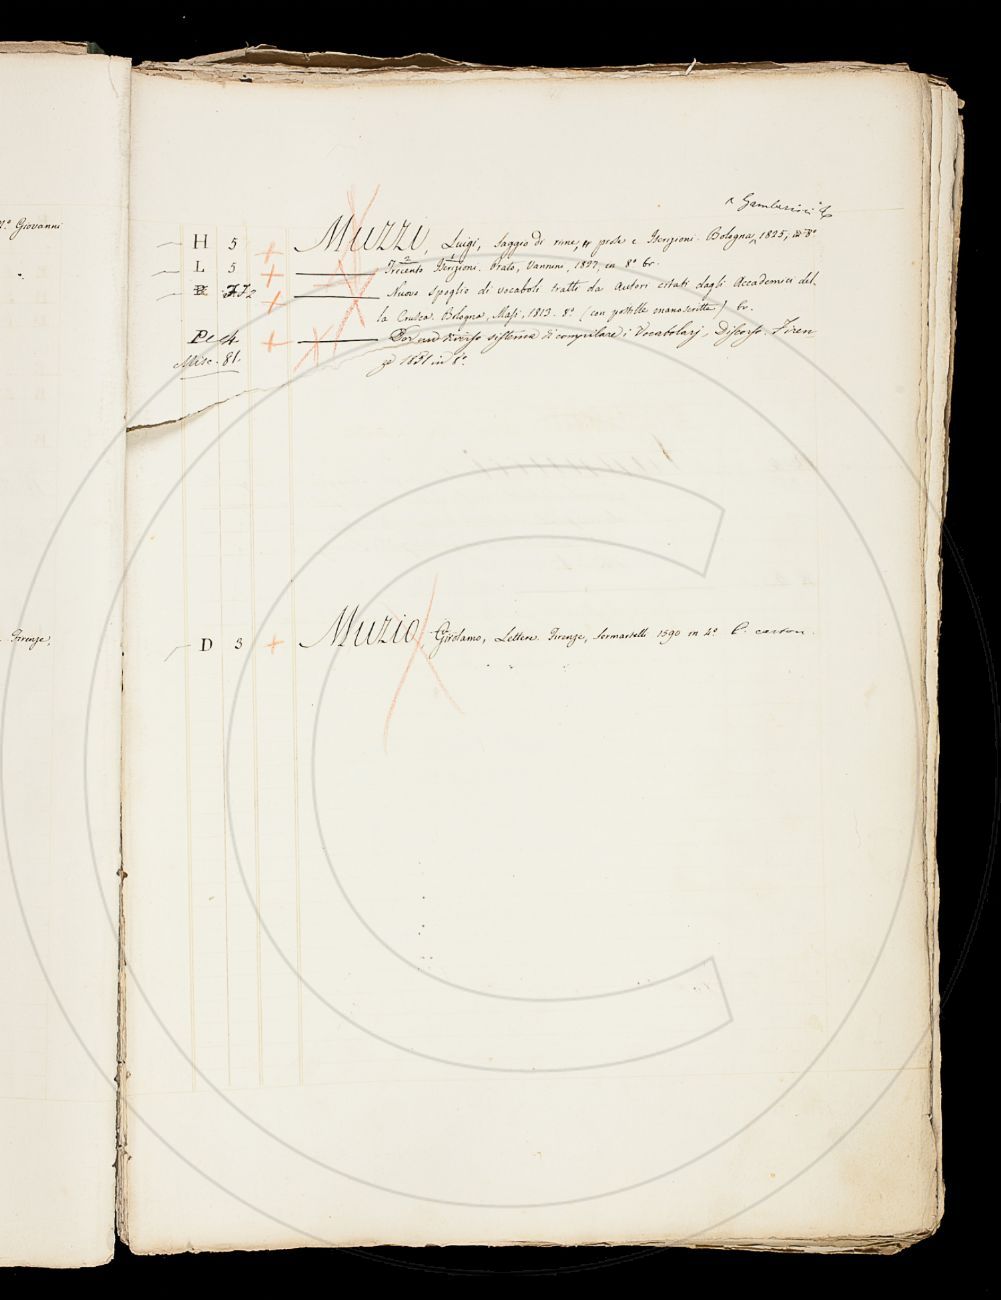 Giovanni
Gamberini
H 5 Muzzi, Luigi, Saggio di rime, prose e Iscrizioni. Bologna, 1825, in 8º
L 5 Trecento Iscrizioni. Prato, Vannini, 1827, in 8º br.
Nuovo spoglio di vocaboli tratti da Autori citati dagli Accademici del-
la Crusca. Bologna, Masi, 1813. 8º (con postille manoscritte) br.
4 Di un diverso sistema di compilare i Vocabolarj, Discorso. Firen
Misc. 81. ze 1831 in 8º.
Firenze,
D 3 Muzio, Girolamo, Lettere. Firenze, Sermartelli 1590 in 4º